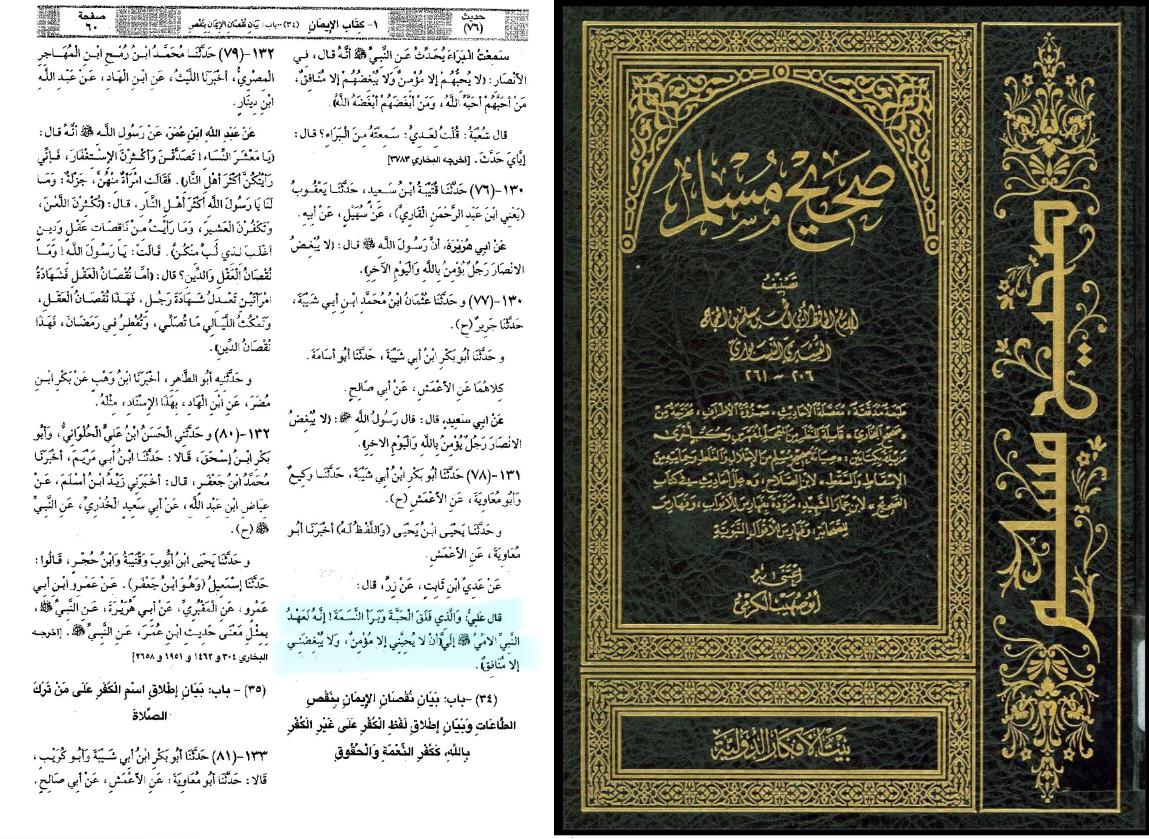 حديث
(٧٦)
١- كِتَاب الإِيمَانِ
(٣٤) -باب: بَيَان نُقْصَانِ الإِيمَانِ بِنَقْصِ
صفحة
٦٠
سَمِعْتُ الْبَرَاءَ يُحَدِّثُ عَنِ النَّبِيِّ ﷺ أَنَّهُ قال، في
الأَنْصَار: (لا يُحِبُّهُمْ إِلا مُؤْمِنٌ وَلا يُبْغِضُهُمْ إِلا مُنَافِقٌ،
مَنْ أَحَبَّهُمْ أَحَبَّهُ اللَّهُ، وَمَنْ أَبْغَضَهُمْ أَبْغَضَهُ اللَّهُ).
قال شُعْبَةُ: قُلْتُ لِعَدِيٍّ: سَمِعْتَهُ مِنَ الْبَرَاءِ؟ قال:
إِيَّايَ حَدَّثَ. [اخرجه البخاري ٣٧٨٣]
١٣٠-(٧٦) حَدَّثَنَا قُتَيْبَةُ ابْنُ سَعِيدٍ، حَدَّثَنَا يَعْقُوبُ
(يَعْنِي ابْنَ عَبْدِ الرَّحْمَنِ الْقَارِيَّ)، عَنْ سُهَيْلٍ، عَنْ أَبِيهِ.
عَنْ أَبِي هُرَيْرَةَ، أَنَّ رَسُولَ اللَّهِ ﷺ قال: (لا يُبْغِضُ
الأَنْصَارَ رَجُلٌ يُؤْمِنُ بِاللَّهِ وَالْيَوْمِ الآخِرِ).
١٣٠-(٧٧) و حَدَّثَنَا عُثْمَانُ ابْنُ مُحَمَّدِ ابْنِ أَبِي شَيْبَةَ،
حَدَّثَنَا جَرِيرٌ (ح).
و حَدَّثَنَا أَبُو بَكْرِ ابْنُ أَبِي شَيْبَةَ، حَدَّثَنَا أَبُو أُسَامَةَ.
كِلاهُمَا عَنِ الأَعْمَشِ، عَنْ أَبِي صَالِحٍ.
عَنْ أَبِي سَعِيدٍ، قال: قال رَسُولُ اللَّهِ ﷺ: (لا يُبْغِضُ
الأَنْصَارَ رَجُلٌ يُؤْمِنُ بِاللَّهِ وَالْيَوْمِ الآخِرِ).
١٣١-(٧٨) حَدَّثَنَا أَبُو بَكْرِ ابْنُ أَبِي شَيْبَةَ، حَدَّثَنَا وَكِيعٌ
وَأَبُو مُعَاوِيَةَ، عَنِ الأَعْمَشِ (ح).
و حَدَّثَنَا يَحْيَى ابْنُ يَحْيَى (وَاللَّفْظُ لَهُ) أَخْبَرَنَا أَبُو
مُعَاوِيَةَ، عَنِ الأَعْمَشِ.
عَنْ عَدِيِّ ابْنِ ثَابِتٍ، عَنْ زِرٍّ، قال:
قال عَلِيٌّ: وَالَّذِي فَلَقَ الْحَبَّةَ وَبَرَأَ النَّسَمَةَ! إِنَّهُ لَعَهْدُ
النَّبِيِّ الأُمِّيِّ ﷺ إِلَيَّ (أَنْ لا يُحِبَّنِي إِلا مُؤْمِنٌ، وَلا يُبْغِضَنِي
إِلا مُنَافِقٌ).
(٣٤) -باب: بَيَانِ نُقْصَانِ الإِيمَانِ بِنَقْصِ
الطَّاعَاتِ وَبَيَانِ إِطْلاقِ لَفْظِ الْكُفْرِ عَلَى غَيْرِ الْكُفْرِ
بِاللَّهِ، كَكُفْرِ النِّعْمَةِ وَالْحُقُوقِ
١٣٢-(٧٩) حَدَّثَنَا مُحَمَّدُ ابْنُ رُمْحِ ابْنِ الْمُهَاجِرِ
الْمِصْرِيُّ، أَخْبَرَنَا اللَّيْثُ، عَنِ ابْنِ الْهَادِ، عَنْ عَبْدِ اللَّهِ
ابْنِ دِينَارٍ.
عَنْ عَبْدِ اللَّهِ ابْنِ عُمَرَ، عَنْ رَسُولِ اللَّهِ ﷺ أَنَّهُ قال:
(يَا مَعْشَرَ النِّسَاءِ! تَصَدَّقْنَ وَأَكْثِرْنَ الاسْتِغْفَارَ، فَإِنِّي
رَأَيْتُكُنَّ أَكْثَرَ أَهْلِ النَّارِ). فَقَالَتِ امْرَأَةٌ مِنْهُنَّ، جَزْلَةٌ: وَمَا
لَنَا يَا رَسُولَ اللَّهِ أَكْثَرَ أَهْلِ النَّارِ، قال: (تُكْثِرْنَ اللَّعْنَ،
وَتَكْفُرْنَ الْعَشِيرَ، وَمَا رَأَيْتُ مِنْ نَاقِصَاتِ عَقْلٍ وَدِينٍ
أَغْلَبَ لِذِي لُبٍّ مِنْكُنَّ). قَالَتْ: يَا رَسُولَ اللَّهِ! وَمَا
نُقْصَانُ الْعَقْلِ وَالدِّينِ؟ قال: (أَمَّا نُقْصَانُ الْعَقْلِ فَشَهَادَةُ
امْرَأَتَيْنِ تَعْدِلُ شَهَادَةَ رَجُلٍ، فَهَذَا نُقْصَانُ الْعَقْلِ،
وَتَمْكُثُ اللَّيَالِي مَا تُصَلِّي، وَتُفْطِرُ فِي رَمَضَانَ، فَهَذَا
نُقْصَانُ الدِّينِ).
و حَدَّثَنِيهِ أَبُو الطَّاهِرِ، أَخْبَرَنَا ابْنُ وَهْبٍ عَنْ بَكْرِ ابْنِ
مُضَرَ، عَنِ ابْنِ الْهَادِ، بِهَذَا الإِسْنَادِ، مِثْلَهُ.
١٣٢-(٨٠) و حَدَّثَنِي الْحَسَنُ ابْنُ عَلِيٍّ الْحُلْوَانِيُّ، وَأَبُو
بَكْرِ ابْنُ إِسْحَقَ، قَالا: حَدَّثَنَا ابْنُ أَبِي مَرْيَمَ، أَخْبَرَنَا
مُحَمَّدُ ابْنُ جَعْفَرٍ، قال: أَخْبَرَنِي زَيْدُ ابْنُ أَسْلَمَ، عَنْ
عِيَاضِ ابْنِ عَبْدِ اللَّهِ، عَنْ أَبِي سَعِيدٍ الْخُدْرِيِّ، عَنِ النَّبِيِّ
ﷺ (ح).
و حَدَّثَنَا يَحْيَى ابْنُ أَيُّوبَ وَقُتَيْبَةُ وَابْنُ حُجْرٍ، قَالُوا:
حَدَّثَنَا إِسْمَعِيلُ (وَهُوَ ابْنُ جَعْفَرٍ). عَنْ عَمْرِو ابْنِ أَبِي
عَمْرٍو، عَنِ الْمَقْبُرِيِّ، عَنْ أَبِي هُرَيْرَةَ، عَنِ النَّبِيِّ ﷺ،
بِمِثْلِ مَعْنَى حَدِيثِ ابْنِ عُمَرَ، عَنِ النَّبِيِّ ﷺ. [اخرجه
البخاري ٣٠٤ و ١٤٦٢ و ١٩٥١ و ٢٦٥٨]
(٣٥) - باب: بَيَانِ إِطْلاقِ اسْمِ الْكُفْرِ عَلَى مَنْ تَرَكَ
الصَّلاةَ
١٣٣-(٨١) حَدَّثَنَا أَبُو بَكْرِ ابْنُ أَبِي شَيْبَةَ وَأَبُو كُرَيْبٍ،
قَالا: حَدَّثَنَا أَبُو مُعَاوِيَةَ، عَنِ الأَعْمَشِ، عَنْ أَبِي صَالِحٍ.
صَحِيحُ مُسْلِم
تَصْنِيفُ
لإمام الحافظ أبي الحسين مسلم بن الحجاج
القشيري النيسابوري
٢٠٦ - ٢٦١
اعتنى به
أبو صهيب الكرمي
بيت الأفكار الدولية
صحيح مسلم